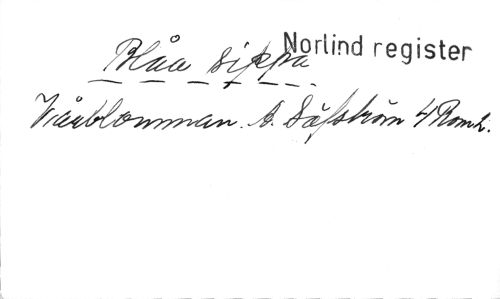 Norlind register
Blåa sippa
Vårblomman. A. Säfström 4 Romb.